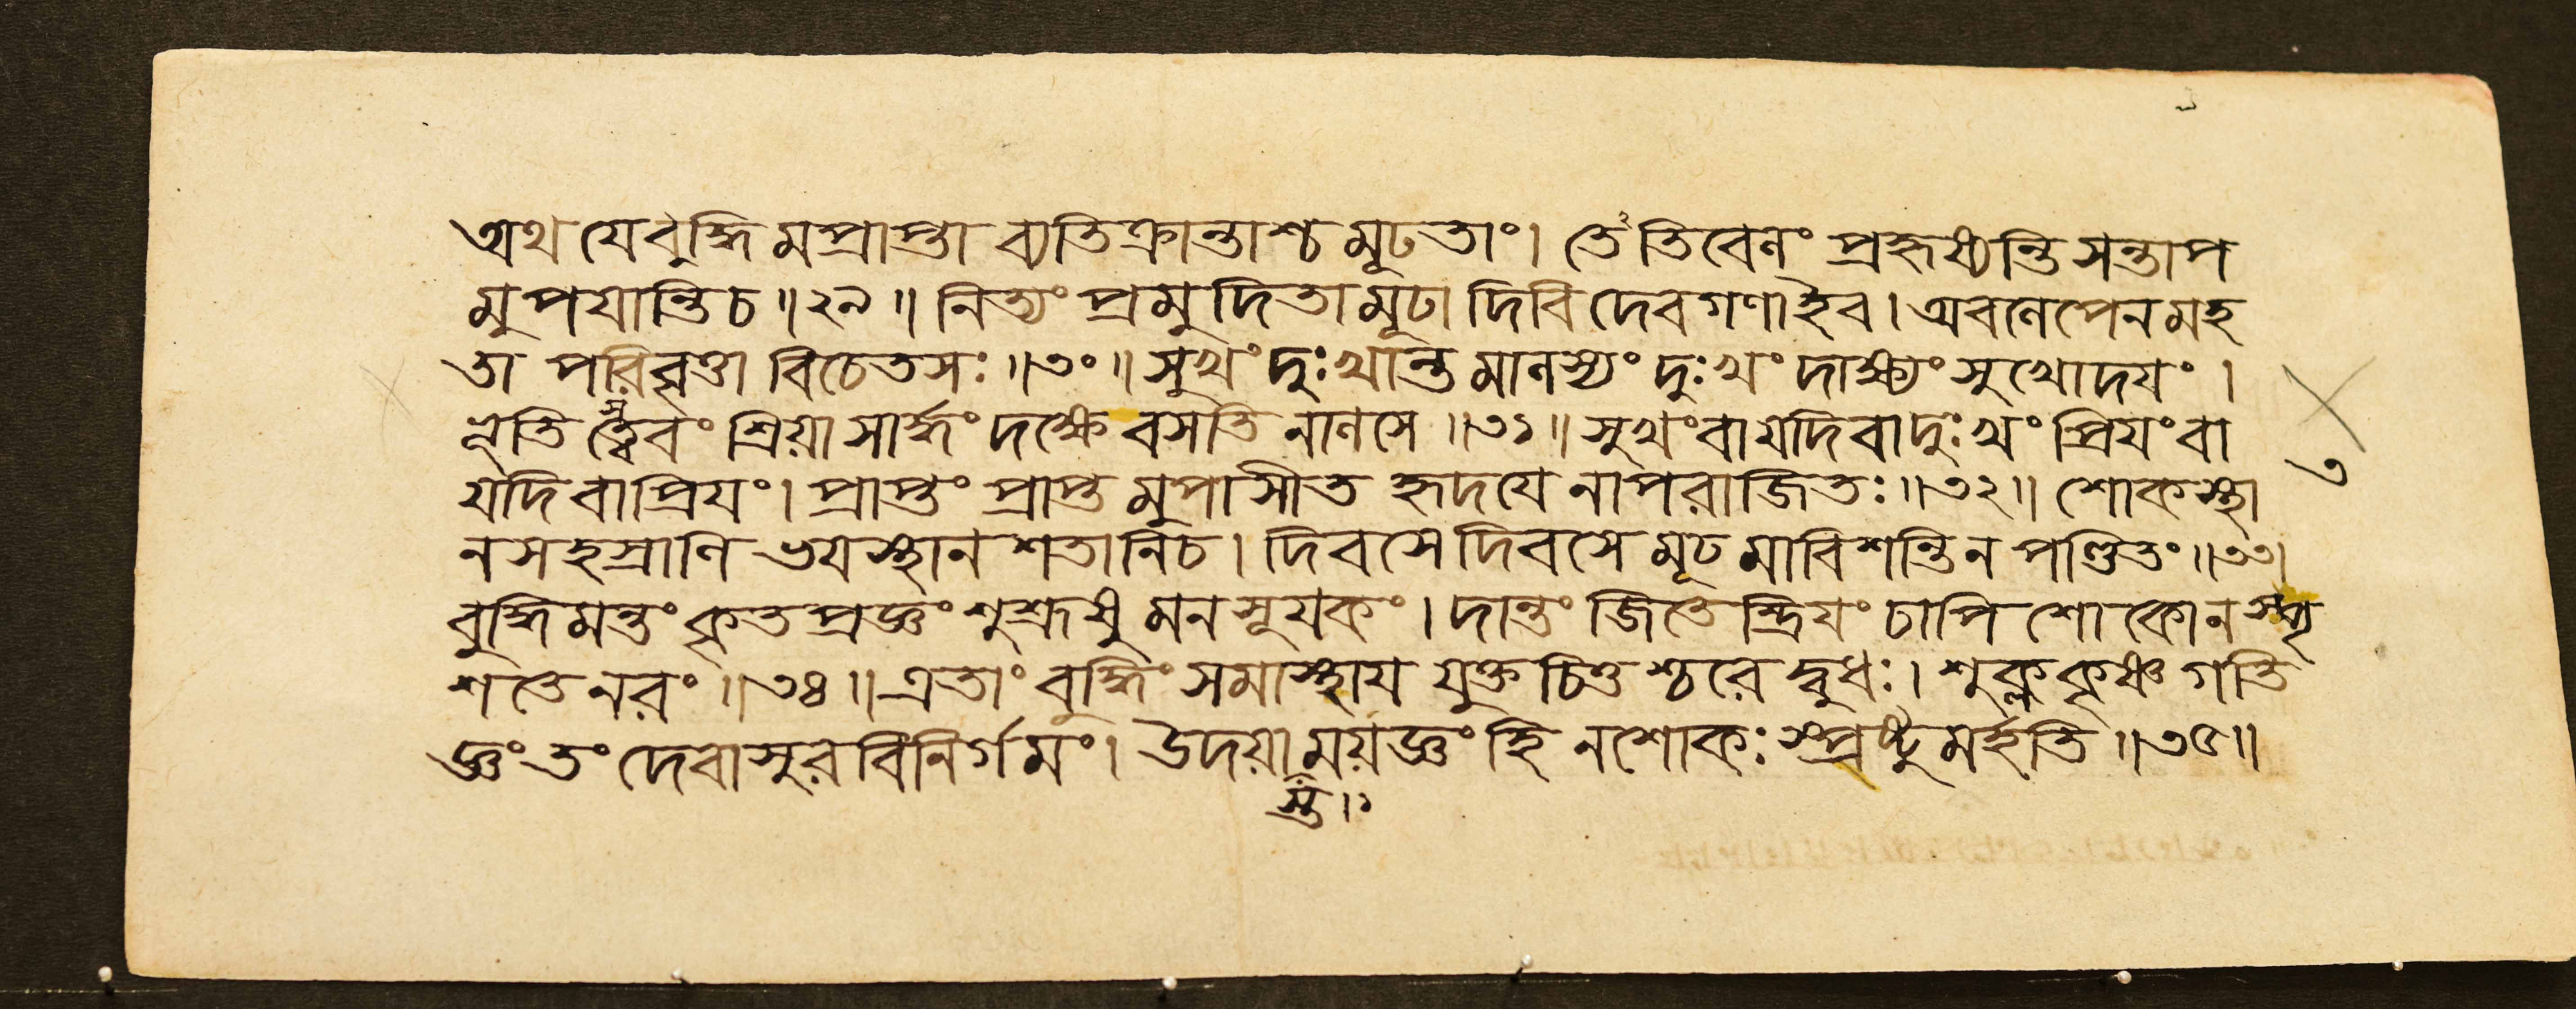 অথ যে বুদ্ধিমপ্রাপ্তা ব্যতিক্রান্তাশ্চ মূঢতাং। তেঽতিবেলং প্রহৃষ্যন্তি সন্তাপ
মুপযান্তি চ॥২৯॥ নিত্যং প্রমুদিতা মূঢা দিবি দেবগণা ইব। অবলেপেন মহ
তা পরিদৃপ্তা বিচেতসঃ॥৩০॥ সুখং দুঃখান্তমালস্যং দুঃখং দাক্ষ্যং সুখোদযং।
ভূতিস্ত্বেবং শ্রিয়া সার্দ্ধং দক্ষে বসতি নালসে॥৩১॥ সুখং বা যদি বা দুঃখং প্রিযং বা
যদি বাপ্রিযং। প্রাপ্তং প্রাপ্তমুপাসীত হৃদযেনাপরাজিতঃ॥৩২॥ শোকস্থা
নসহস্রাণি ভযস্থানশতানি চ। দিবসে দিবসে মূঢমাবিশন্তি ন পণ্ডিতং॥৩৩।
বুদ্ধিমন্তং কৃতপ্রজ্ঞং শুশ্রূষুমনসূযকং। দান্তং জিতেন্দ্রিযং চাপি শোকো ন স্পৃ
শতে নরং॥৩৪॥ এতাং বুদ্ধিং সমাস্থায যুক্তচিত্তশ্চরেদ্বুধঃ। শুক্লকৃষ্ণগতি
জ্ঞং তং দেবাসুরবিনির্গমং। উদয়াময়জ্ঞং হি ন শোকঃ স্প্রষ্টুমর্হতি॥৩৫॥
স্ত।১
৩